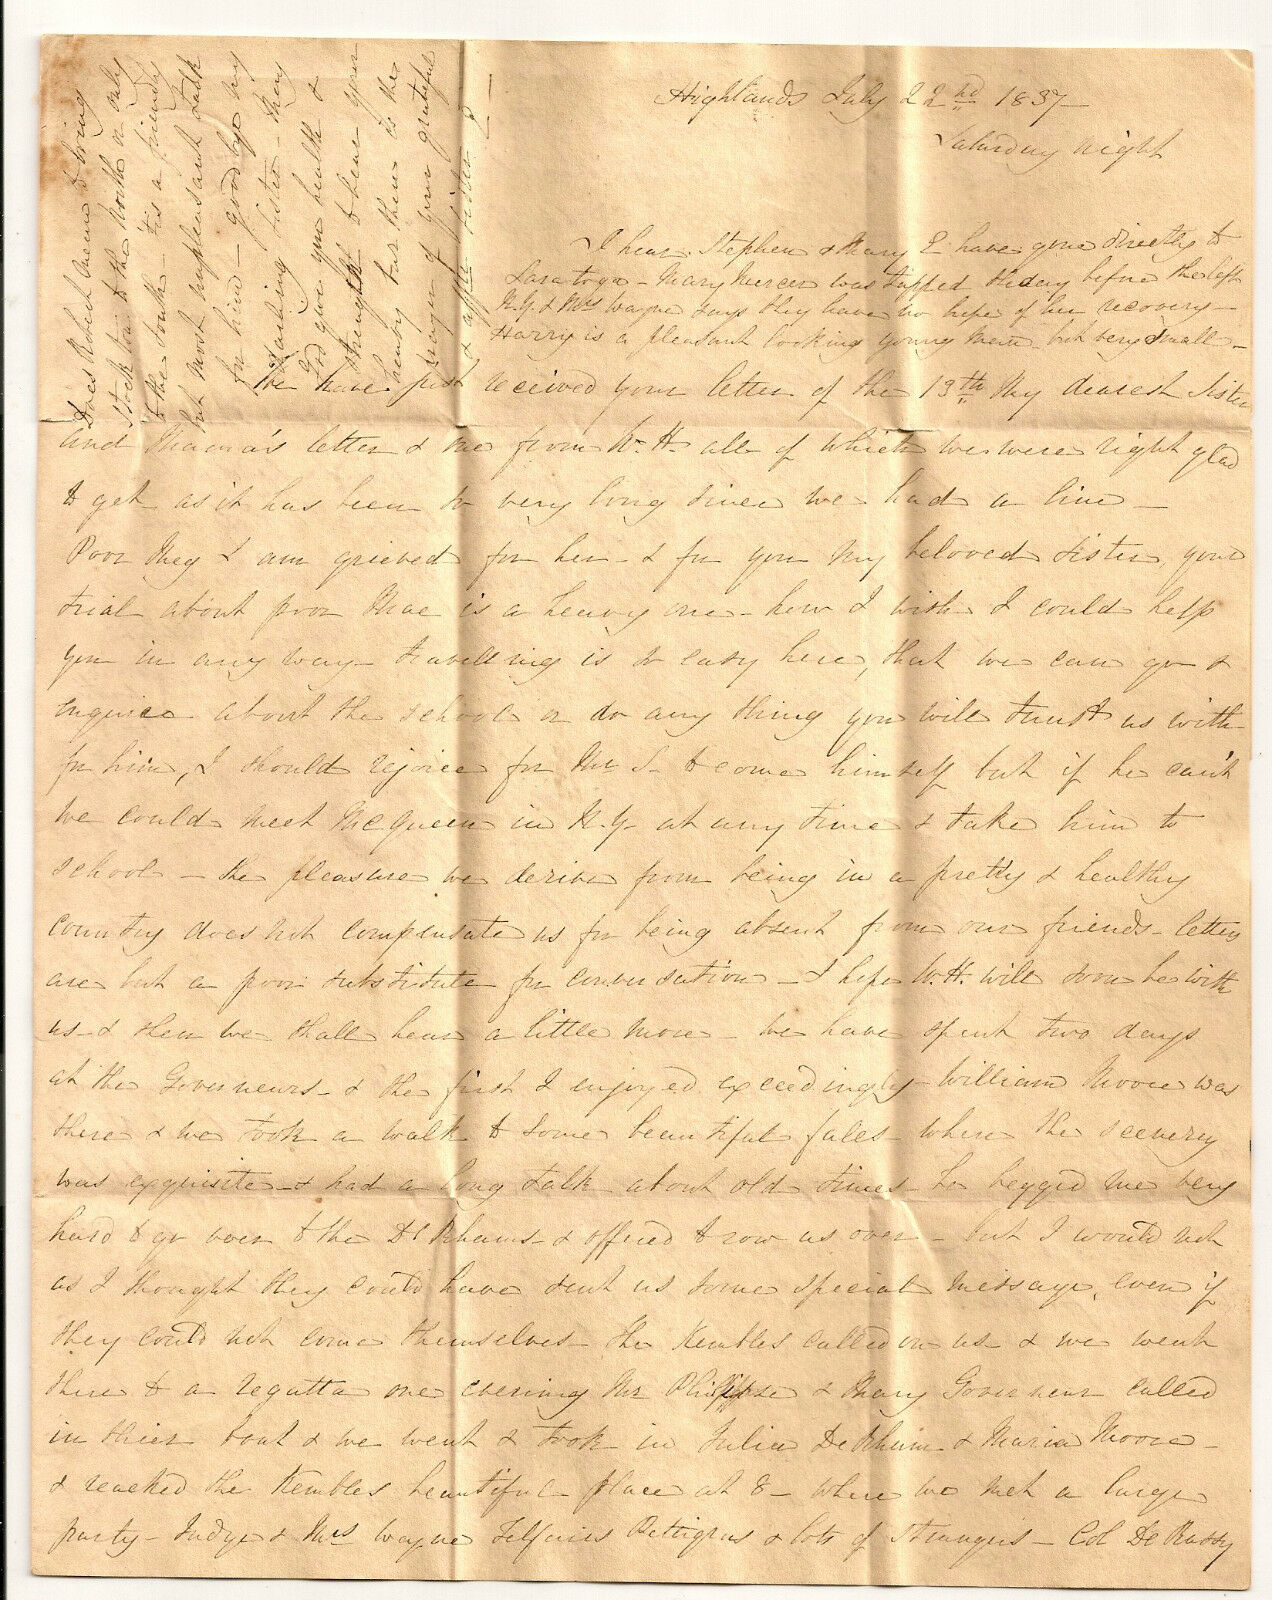 Highlands July 22nd 1837
Saturday night
I hear Stephen & Mary E have gone directly to
Saratoga - Mary Mercer was tapped the day before the left
N.Y. & Mrs Wayne says they have no hope of her recovery -
Harry is a pleasant looking young man, but very small -
We have just received your letter of the 13th My dearest Sister
and Mama's letter & one from W. H. all of which we were right glad
to get as it has been so very long since we had a line -
Poor Meg I am grieved for her - & for you my beloved sister, your
trial about poor Mac is a heavy one - how I wish I could help
you in any way - travelling is so easy here, that we can go &
inquire about the school or do any thing you will trust us with
for him, I should rejoice for Mr S. to come himself but if he can't
we could meet McQueen in N.Y. at any time & take him to
school - the pleasure we derive from being in a pretty & healthy
country does not compensate us for being absent from our friends - letters
are but a poor substitute for conversation - I hope W. H. will soon be with
us - & then we shall hear a little more - we have spent two days
at the Governeurs - & the first I enjoyed exceedingly - William Moore was
there & we took a walk to some beautiful falls - where the scenery
was exquisite - & had a long talk about old times - he begged me very
hard to go over to the De Rhams - & offered to row us over - but I would not
as I thought they could have sent us some special message, even if
they could not come themselves - the Kembles called on us - & we went
there to a regatta one evening Mr Philipse & Mary Governeur called
in their boat & we went & took in Julia De Rham & Maria Moore -
& reached the Kembles beautiful place at 8 - where we met a large
party - Judge & Mrs Wayne Telfairs Petigrus & lots of strangers - Col De Russy
Does Robert mean to bring
Stockton to the North or only
to the South - tis a friendly
but most unpleasant task
for him - good bye my
darling sister - may
God give you health &
strength to bear your
but there is the
prayer of your grateful
& affte sister E